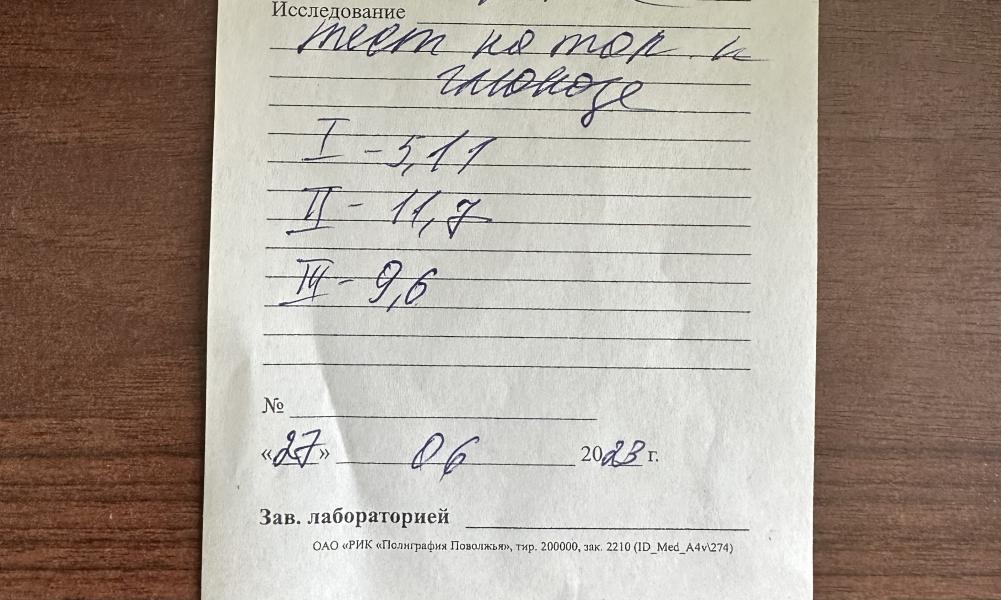 Исследование
тест на тол. к
глюкозе
I - 5,11
II - 11,7
III - 9,6
№
«27» 06 2023 г.
Зав. лабораторией
ОАО «РИК «Полиграфия Поволжья», тир. 200000, зак. 2210 (ID_Med_A4v\274)